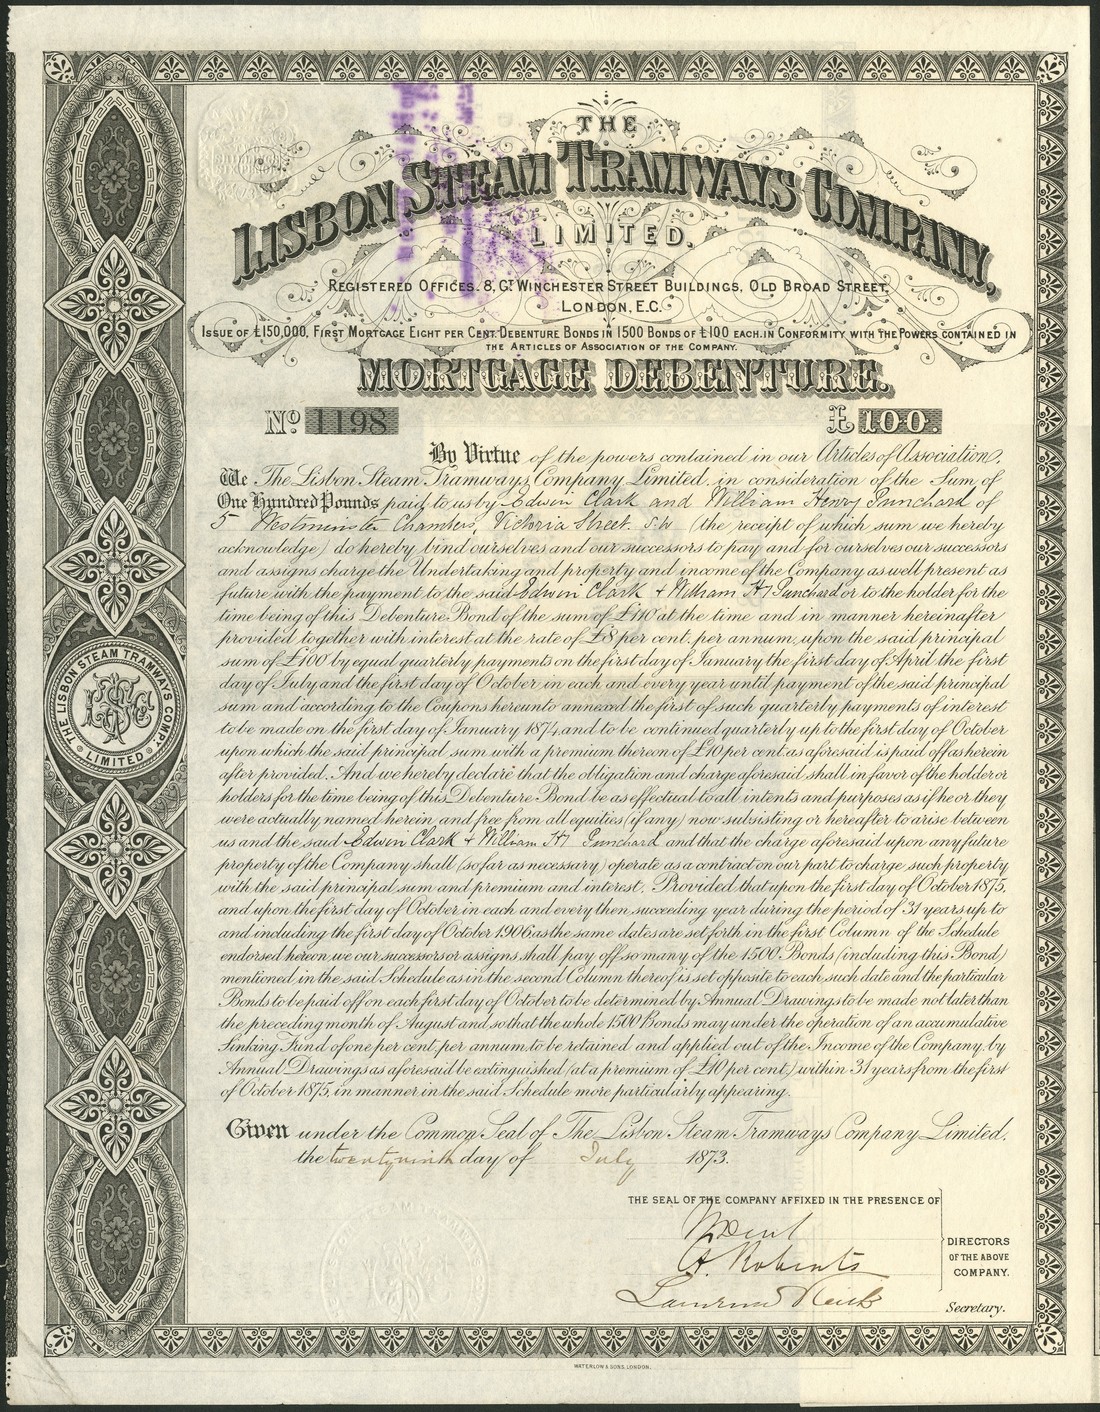 THE
LISBON STEAM TRAMWAYS COMPANY,
LIMITED.
REGISTERED OFFICES. 8, GT WINCHESTER STREET BUILDINGS, OLD BROAD STREET,
LONDON, E.C.
ISSUE OF £150,000, FIRST MORTGAGE EIGHT PER CENT. DEBENTURE BONDS IN 1500 BONDS OF £100 EACH. IN CONFORMITY WITH THE POWERS CONTAINED IN
THE ARTICLES OF ASSOCIATION OF THE COMPANY.
MORTGAGE DEBENTURE.
No. 1198 £100.
By Virtue of the powers contained in our Articles of Association,
We The Lisbon Steam Tramways Company Limited, in consideration of the Sum of
One Hundred Pounds paid to us by Edwin Clark and William Henry Punchard of
5 Westminster Chambers, Victoria Street. S.W (the receipt of which sum we hereby
acknowledge) do hereby bind ourselves and our successors to pay and for ourselves our successors
and assigns charge the Undertaking and property and income of the Company as well present as
future with the payment to the said Edwin Clark + William Hy Punchard or to the holder for the
time being of this Debenture Bond of the sum of £110 at the time and in manner hereinafter
provided together with interest at the rate of £8 per cent. per annum, upon the said principal
sum of £100 by equal quarterly payments on the first day of January the first day of April the first
day of July and the first day of October in each and every year until payment of the said principal
sum and according to the Coupons hereunto annexed the first of such quarterly payments of interest
to be made on the first day of January 1874, and to be continued quarterly up to the first day of October
upon which the said principal sum with a premium thereon of £10 per cent. as aforesaid is paid off as herein
after provided. And we hereby declare that the obligation and charge aforesaid shall in favor of the holder or
holders for the time being of this Debenture Bond be as effectual to all intents and purposes as if he or they
were actually named herein and free from all equities (if any) now subsisting or hereafter to arise between
us and the said Edwin Clark + William Hy Punchard and that the charge aforesaid upon any future
property of the Company shall (so far as necessary) operate as a contract on our part to charge such property
with the said principal sum and premium and interest. Provided that upon the first day of October 1875,
and upon the first day of October in each and every then succeeding year during the period of 31 years up to
and including the first day of October 1906, as the same dates are set forth in the first Column of the Schedule
endorsed hereon, we our successors or assigns shall pay off so many of the 1500 Bonds (including this Bond)
mentioned in the said Schedule as in the second Column thereof is set opposite to each such date and the particular
Bonds to be paid off on each first day of October to be determined by Annual Drawings to be made not later than
the preceding month of August and so that the whole 1500 Bonds may under the operation of an accumulative
Sinking Fund of one per cent. per annum, to be retained and applied out of the Income of the Company, by
Annual Drawings as aforesaid be extinguished (at a premium of £10 per cent.) within 31 years from the first
of October 1875, in manner in the said Schedule more particularly appearing.
Given under the Common Seal of The Lisbon Steam Tramways Company Limited,
the twenty ninth day of July 1873.
THE SEAL OF THE COMPANY AFFIXED IN THE PRESENCE OF
A. Roberts
DIRECTORS
OF THE ABOVE
COMPANY.
Secretary.
THE LISBON STEAM TRAMWAYS COMPY
LIMITED
WATERLOW & SONS, LONDON.